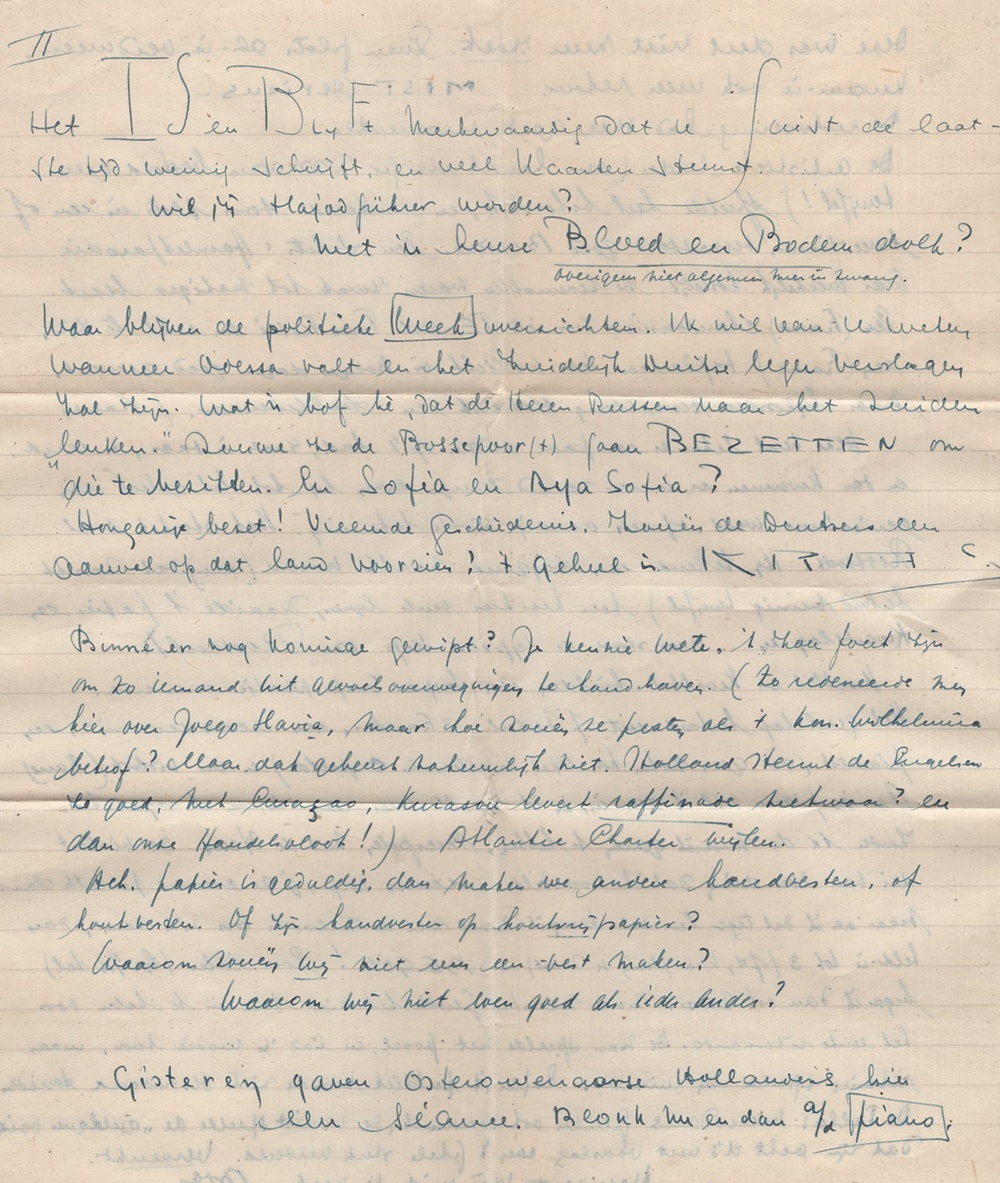 II
Het IS en BLyFt Merkwaardig dat U juist de laat-
ste tijd weinig schrijft, en veel Kaarten stuurt.
Wil jij Hajodführer worden?
Met 'n heuse Bloed en Bodem dolk?
overigens niet algemeen meer in zwang.
Waar blijven de politieke Week overzichten. Ik wil van U weten,
wanneer Odessa valt en het Zuidelijk Duitse leger verslagen
zal zijn. Wat 'n bof hè, dat de Heren Russen naar het Zuiden
lenken. Zouwe ze de Bossepoor(t) gaan BEZETTEN om
"die te bezitten. En Sofia en Aya Sofia?
Hongarije bezet! Vreemde geschiedenis. Zouën de Duitsers een
aanval op dat land voorzien! 't geheel is K R I T I S
Binne er nog Koninge gewipt? Je ken nie wete. 't zou fout zijn
om zo iemand uit gevoelsoverwegingen te handhaven. (Zo redeneerde men
hier over Joego Slavia, maar hoe zouën ze praten als 't kon. Wilhelmina
betrof? Maar dat gebeurt natuurlijk niet. Holland steunt de Engelsen
zo goed, met Curaçao, Kurasou levert raffinade nietwaar? en
dan onze Handelsvloot!) Atlantic Charter wijlen.
Ach. papier is geduldig, dan maken we andere handvesten, of
houtvesten. Of zijn handvesten op houtvrijpapier?
Waarom zouën wij niet eens een vest maken?
Waarom wij niet even goed als ieder ander?
Gisteren gaven Hollanders hier
een Séance. Blonk nu en dan a/d piano.